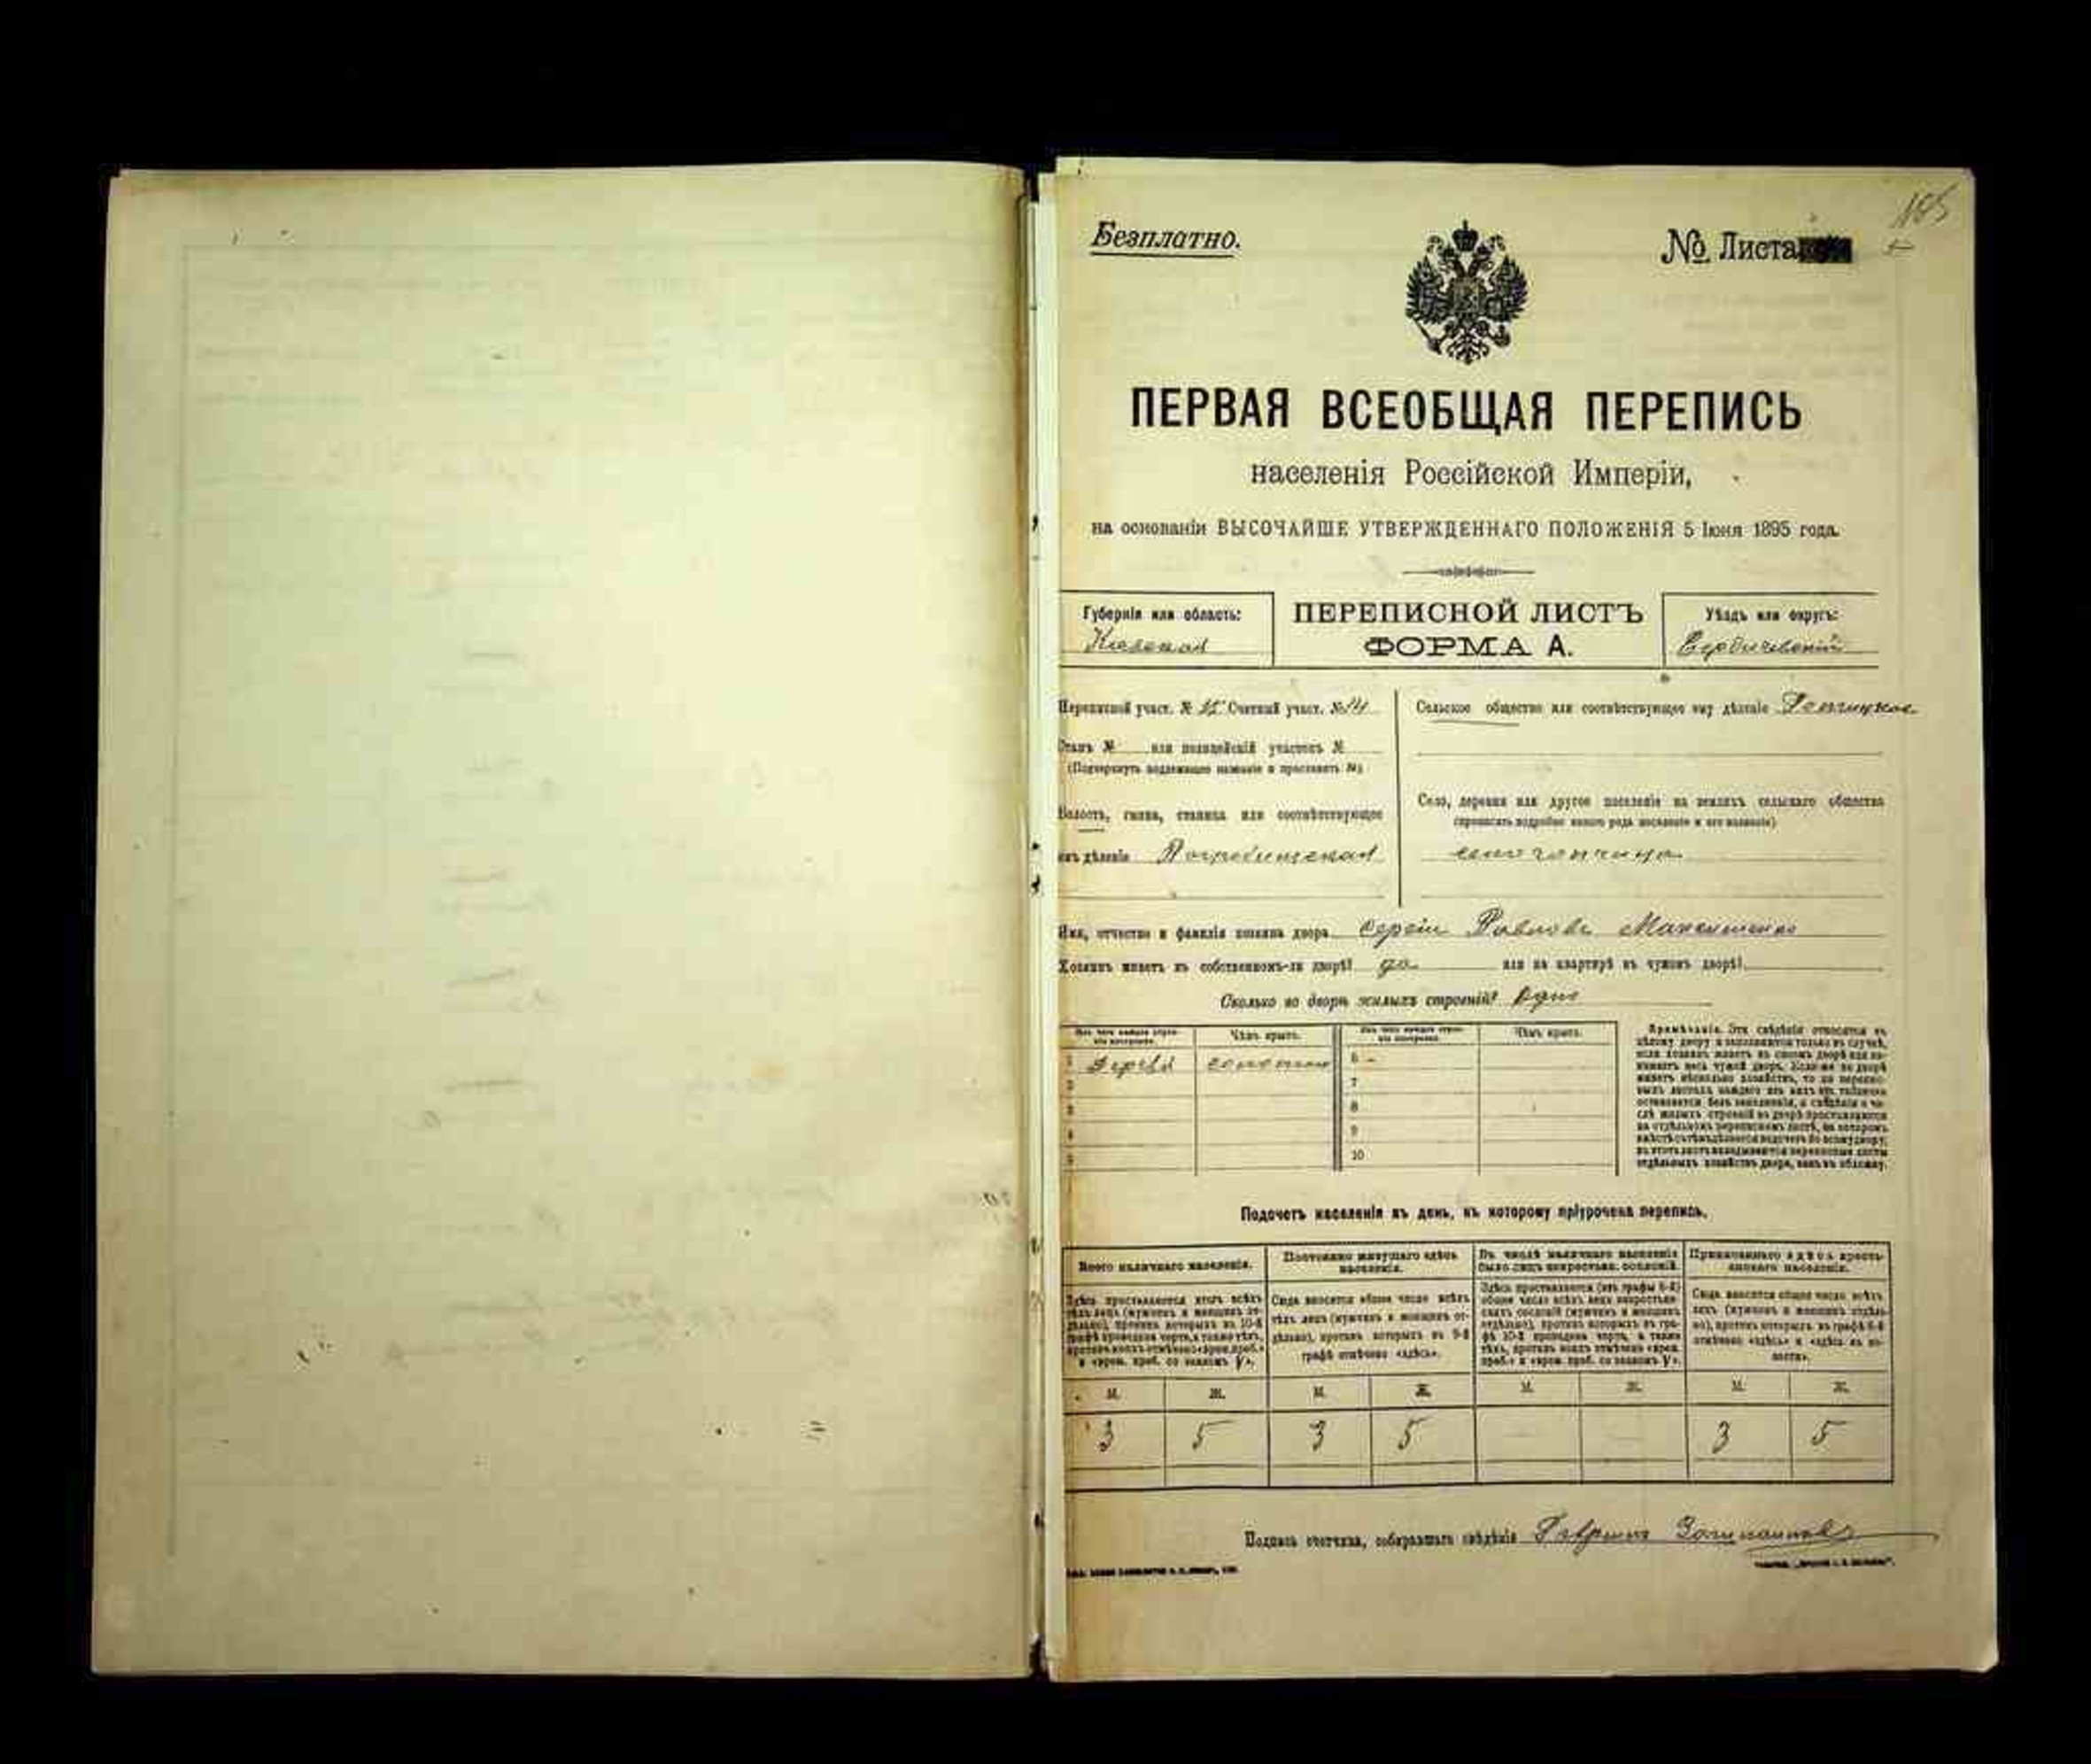 185
Безплатно.
№ Листа
ПЕРВАЯ ВСЕОБЩАЯ ПЕРЕПИСЬ
населенія Россійской Имперіи,
на основаніи ВЫСОЧАЙШЕ УТВЕРЖДЕННАГО ПОЛОЖЕНІЯ 5 Іюня 1895 года.
Губернія или область:
Кіевская
ПЕРЕПИСНОЙ ЛИСТЪ
ФОРМА А.
Уѣздъ или округъ:
Бердичевскій
Переписной участ. № 15 Счетный участ. № 14
Станъ № или полицейскій участокъ №
(Подчеркнуть подлежащее названіе и проставить №)
Волость, гмина, станица или соотвѣтствующее
имъ дѣленіе Погребищенская
Сельское общество или соотвѣтствующее ему дѣленіе
Село, деревня или другое поселеніе на земляхъ сельскаго общества
(прописать подробно какого рода поселеніе и его названіе)
Имя, отчество и фамилія хозяина двора Сергій Павловъ
Хозяинъ живетъ въ собственномъ-ли дворѣ? да или на квартирѣ въ чужомъ дворѣ?
Сколько во дворѣ жилыхъ строеній? одно
Изъ чего каждое строеніе построено.
Чѣмъ крыто.
Изъ чего каждое строеніе построено.
Чѣмъ крыто.
1 Дерева соломою
2
3
4
5
6
7
8
9
10
Примѣчаніе. Эти свѣдѣнія относятся къ
цѣлому двору и заполняются только въ случаѣ,
если хозяинъ живетъ въ своемъ дворѣ или на-
нимаетъ весь чужой дворъ. Если-же во дворѣ
живетъ нѣсколько хозяйствъ, то на перепис-
ныхъ листахъ каждаго изъ нихъ эта табличка
оставляется безъ заполненія, а свѣдѣнія о чи-
слѣ жилыхъ строеній въ дворѣ проставляются
на отдѣльномъ переписномъ листѣ, на которомъ
вмѣстѣ съ тѣмъ дѣлается подсчетъ по всему двору;
въ этотъ листъ вкладываются переписные листы
отдѣльныхъ хозяйствъ двора, какъ въ обложку.
Подсчетъ населенія въ день, къ которому пріурочена перепись.
Всего наличнаго населенія.
Здѣсь проставляется итогъ всѣхъ
тѣхъ лицъ (мужчинъ и женщинъ от-
дѣльно), противъ которыхъ въ 10-й
графѣ проведена черта, а также тѣхъ,
противъ коихъ отмѣчено «врем. проб.»
и «врем. преб. со знакомъ V».
Постоянно живущаго здѣсь
населенія.
Сюда вносится общее число всѣхъ
тѣхъ лицъ (мужчинъ и женщинъ от-
дѣльно), противъ которыхъ въ 9-й
графѣ отмѣчено «здѣсь».
Въ числѣ наличнаго населенія
было лицъ некрестьян. сословій.
Здѣсь проставляется (изъ графы 6-й)
общее число всѣхъ лицъ некрестьян-
скихъ сословій (мужчинъ и женщинъ
отдѣльно), противъ которыхъ въ гра-
фѣ 10-й проведена черта, а также
тѣхъ, противъ коихъ отмѣчено «врем.
преб.» и «врем. преб. со знакомъ V».
Приписаннаго здѣсь кресть-
янскаго населенія.
Сюда вносится общее число всѣхъ
лицъ (мужчинъ и женщинъ отдѣль-
но), противъ которыхъ въ графѣ 8-й
отмѣчено «здѣсь» и «здѣсь въ во-
лости».
М. Ж. М. Ж. М. Ж. М. Ж.
3 5 3 5 — — 3 5
Подпись счетчика, собиравшаго свѣдѣнія